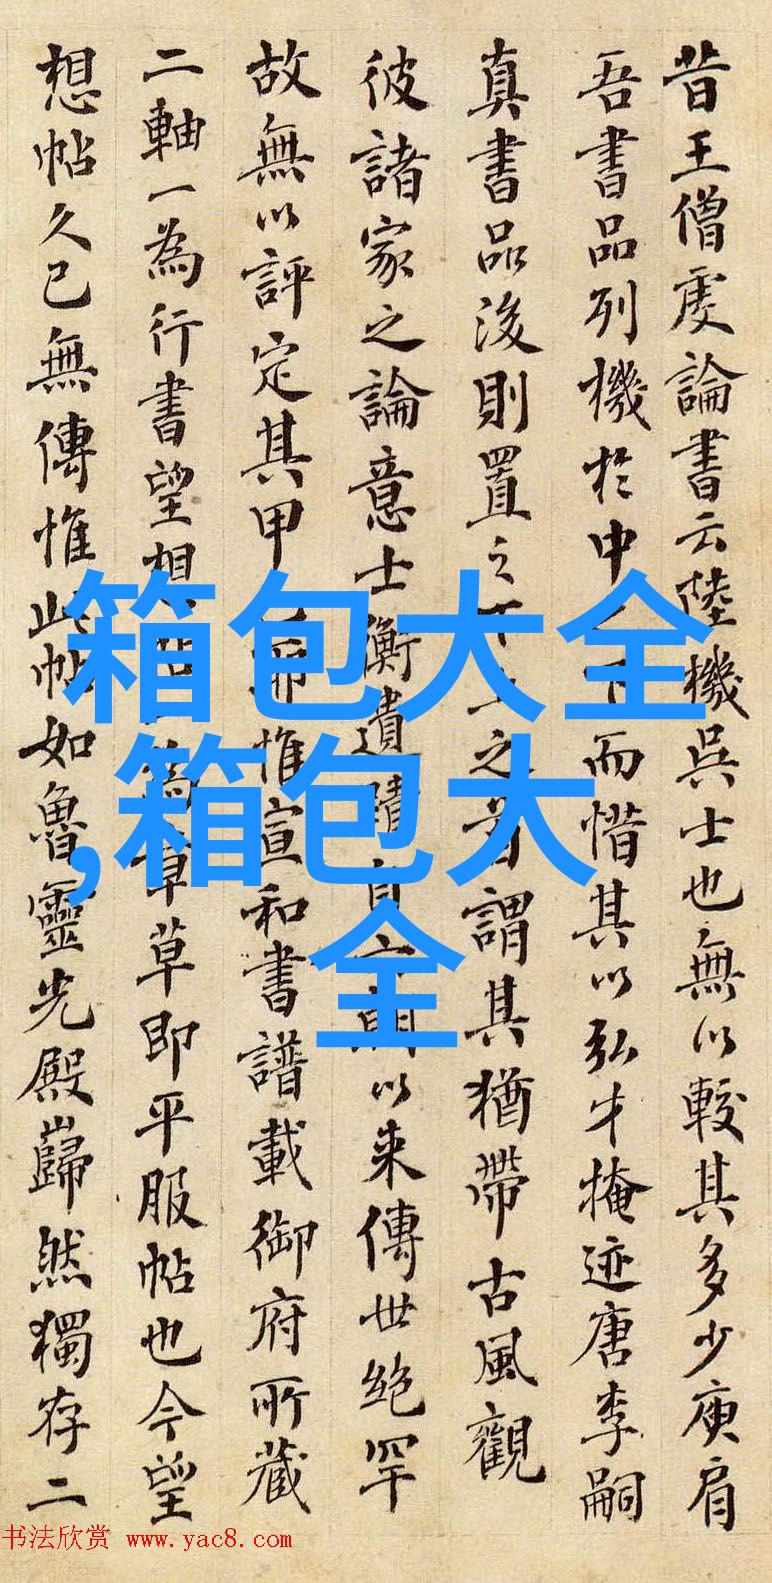 昔王僧虔論書云陸機吳士也無以較其多少庾肩
吾書品列機於中下而惜其以弘才掩迹唐李嗣
真書品後則置之下上之首謂其猶帶古風觀
彼諸家之論意士衡遺蹟自以来傳世絶罕
故無以評定其甲耶惟宣和書譜載御府所藏
二軸一為行書望想帖一為章草即平服帖也今望
想帖久已無傳惟此帖如魯靈光殿巋然獨存二
箱包大全
,箱包大
全
书法欣赏 www.yac8.com